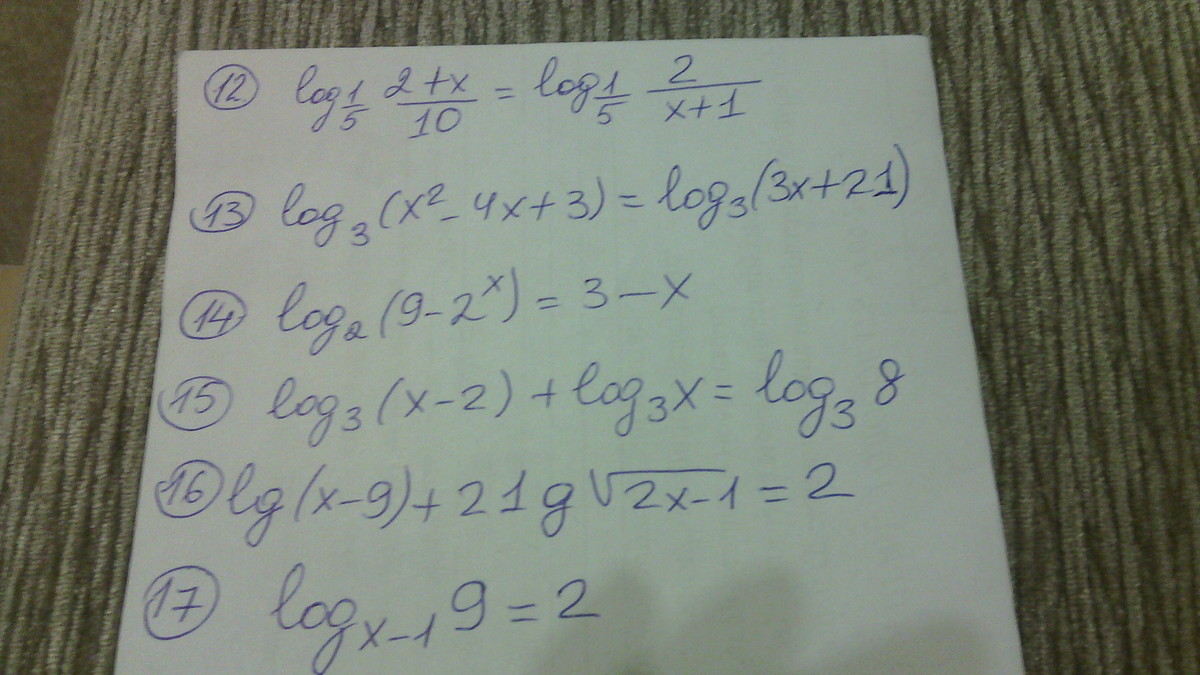 12 log_{1/5} (2+x)/10 = log_{1/5} 2/(x+1)
13 log₃(x²-4x+3) = log₃(3x+21)
14 log₂(9-2ˣ) = 3-x
15 log₃(x-2) + log₃x = log₃8
16 lg(x-9) + 2lg√(2x-1) = 2
17 log_{x-1} 9 = 2